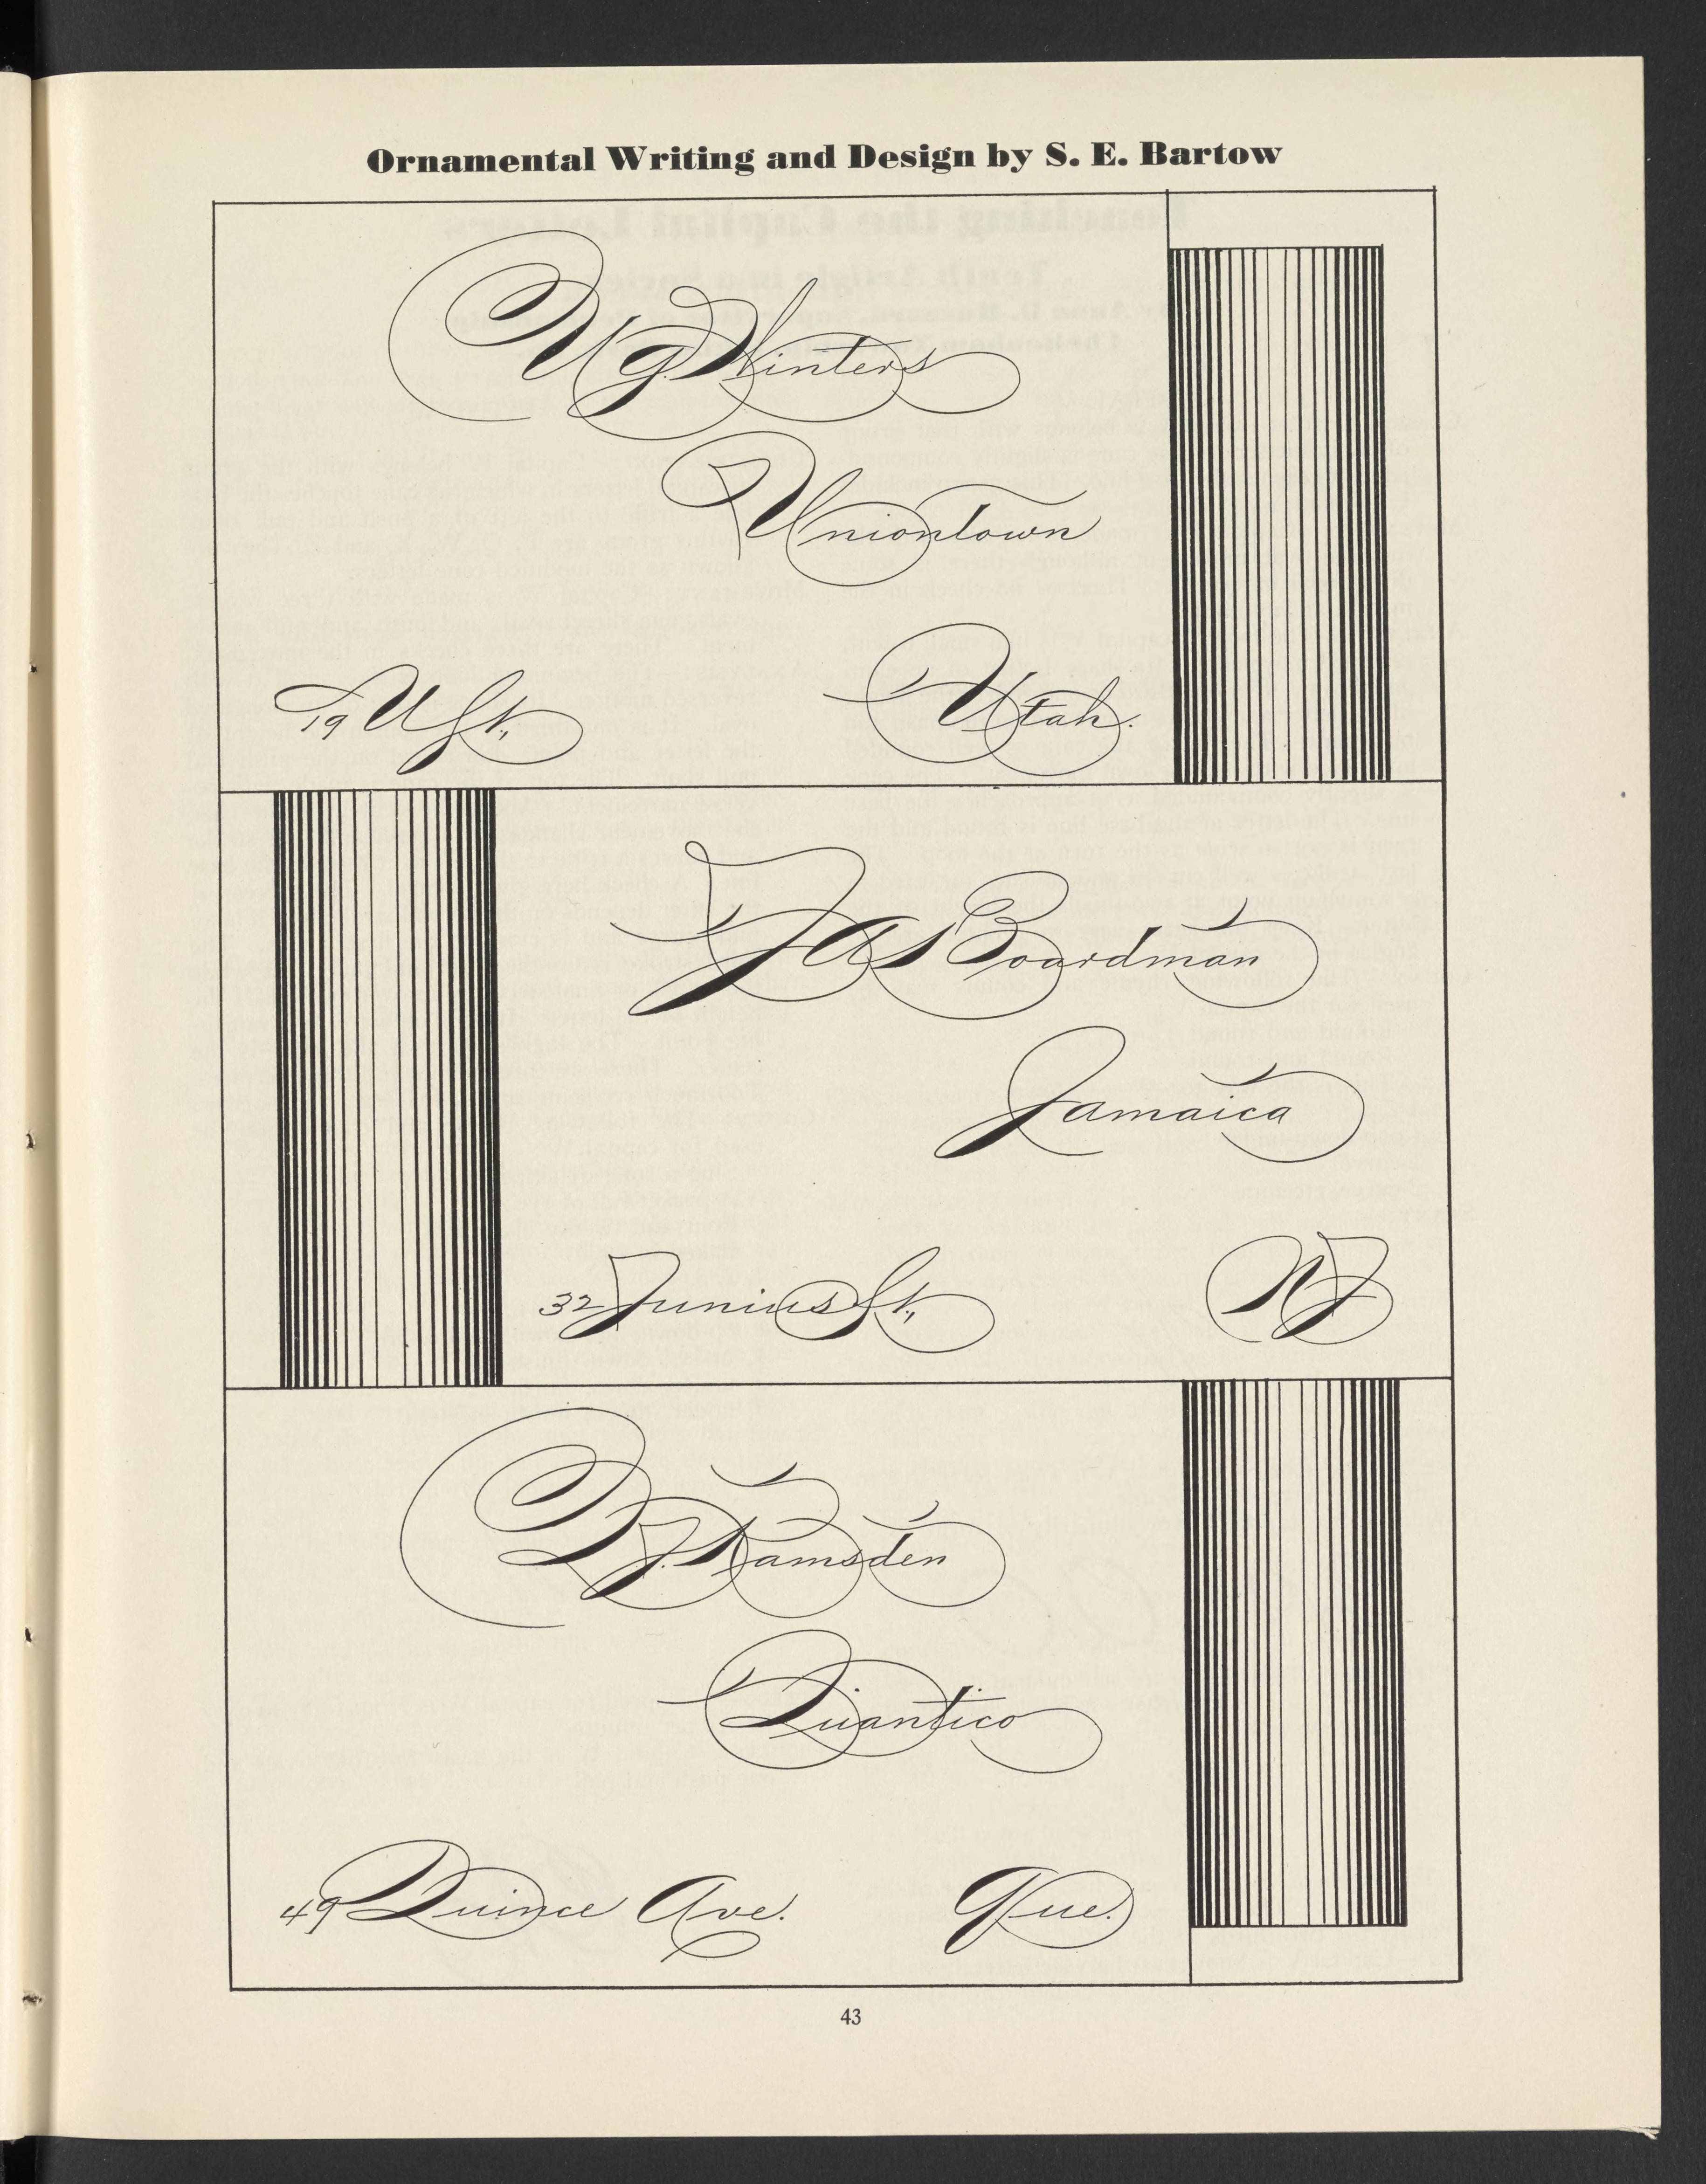 Ornamental Writing and Design by S. E. Bartow
U G Winters
Uniontown
19 U St., Utah.
J A S Boardman
Jamaica
32 Junius St., N J
Q. J. Ramsden
Quantico
49 Quince Ave. Que.
43